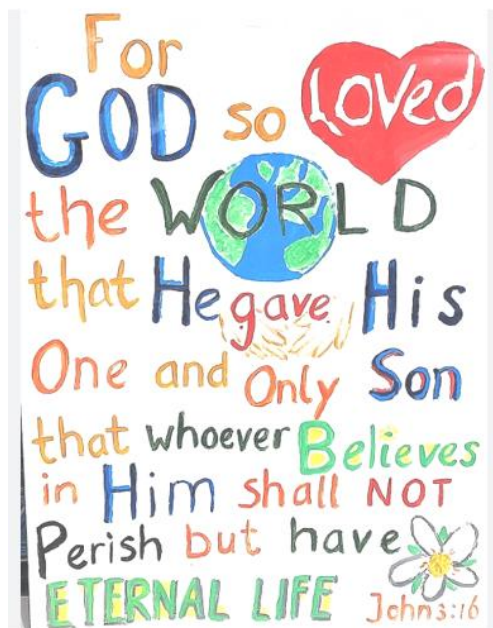 For
GOD so Loved
the WORLD
that He gave His
One and Only Son
that whoever Believes
in Him shall NOT
Perish but have
ETERNAL LIFE John 3:16